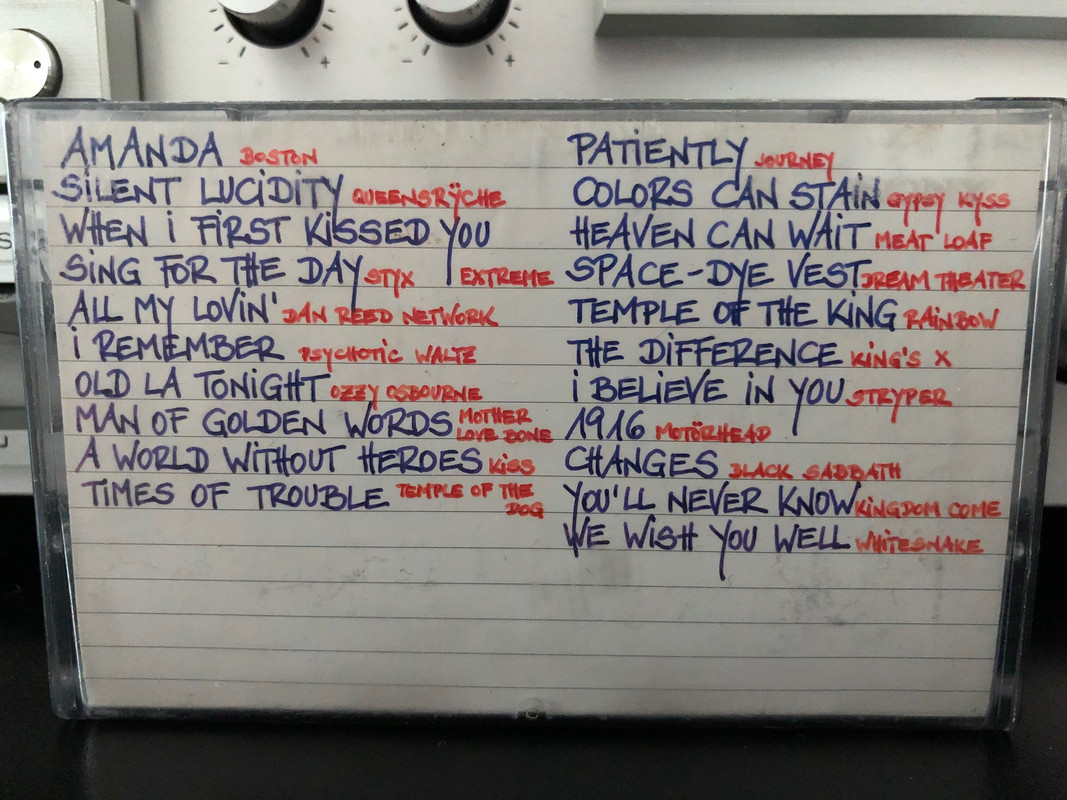 AMANDA BOSTON
SiLENT LUCiDiTY QUEENSRŸCHE
WHEN i FiRST KiSSED YOU
EXTREME
SiNG FOR THE DAY STYX
ALL MY LOViN' DAN REED NETWORK
i REMEMBER PSYCHOTiC WALTZ
OLD LA TONiGHT OZZY OSBOURNE
MAN OF GOLDEN WORDS MOTHER
LOVE BONE
A WORLD WiTHOUT HEROES KiSS
TiMES OF TROUBLE TEMPLE OF THE
DOG
PATiENTLY JOURNEY
COLORS CAN STAiN GYPSY KYSS
HEAVEN CAN WAiT MEAT LOAF
SPACE-DYE VEST DREAM THEATER
TEMPLE OF THE KiNG RAiNBOW
THE DiFFERENCE KiNG'S X
i BELiEVE iN YOU STRYPER
1916 MOTÖRHEAD
CHANGES BLACK SABBATH
YOU'LL NEVER KNOW KiNGDOM COME
WE WiSH YOU WELL WHiTESNAKE